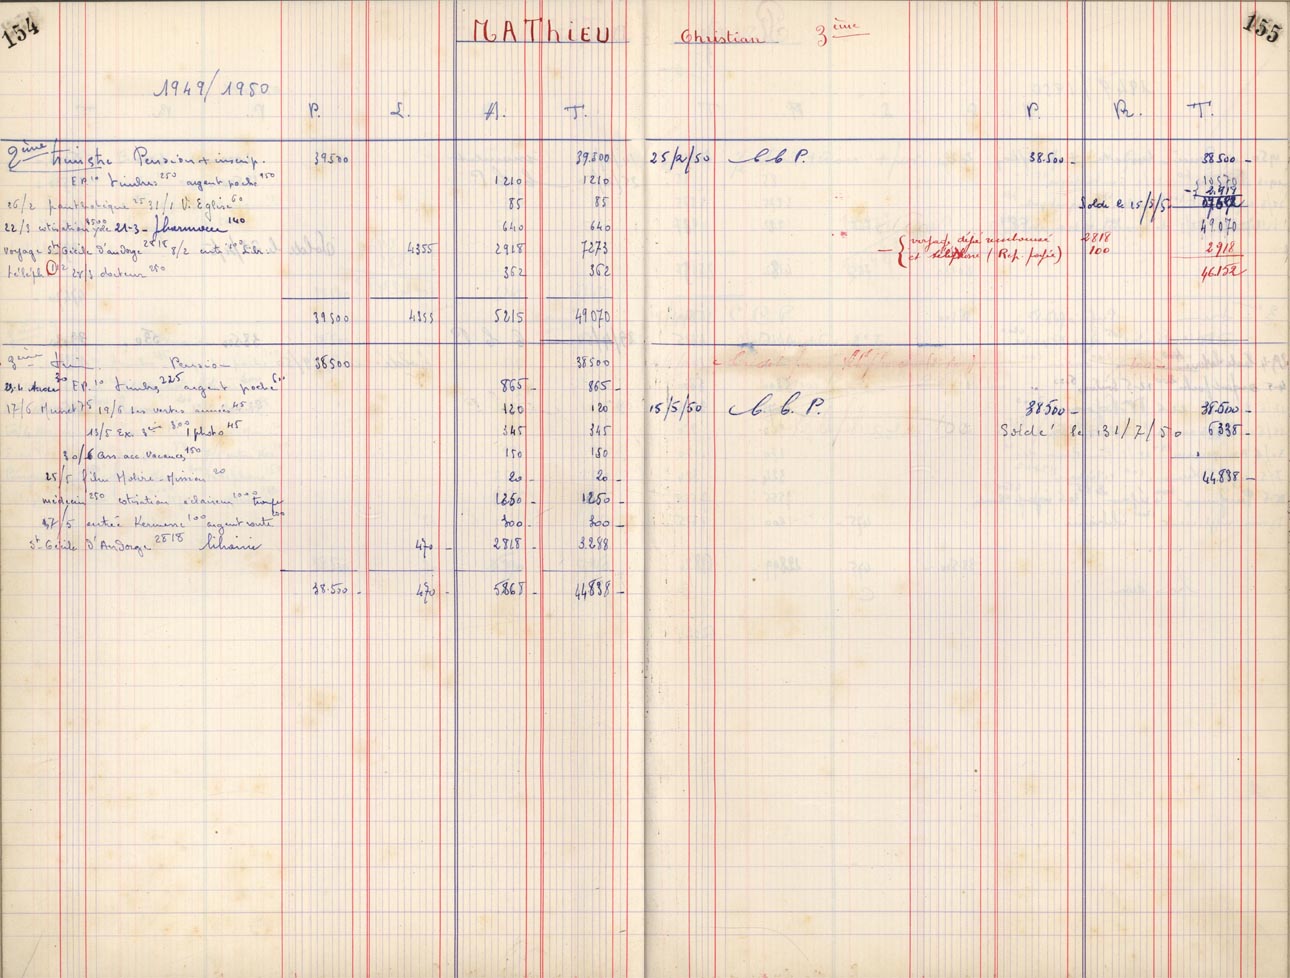 154
MAThiEU Christian 3ème
155
1949/1950
P. L. A. T.
P. R. T.
2ème trimestre Pension + inscrip. 39500 39.500
EP 10 timbres 250 argent poche 950 1210 1210
26/2 25 31/1 V. Eglise 60 85 85
22/3 cotisation 500 21-3 - pharmacie 140 640 640
voyage St Cécile d'andorge 2818 8/2 4355 2918 7273
téléph 28/3 docteur 250 362 362
39500 4355 5215 49070
25/2/50 C C P. 38.500 - 38500 -
10570
- 2.918
Solde le 15/3/50 07652
49.070
- { voyage déjà remboursé 2818
et téléphone (Rep. payée) 100 2918
46.152
3ème trim. Pension 38500 38500
EP. 10 timbres 225 argent poche 600 865 - 865 -
17/6 Musset 75 19/6 Les vertes années 45 120 120
13/5 Ex. 3è 300 1 photo 45 345 345
30/6 Ass. acc. Vacances 150 150 150
25/5 film Molière - Mission 20 20 - 20 -
médecin 250 cotisation éclaireur 1000 troupe 1250 - 1250 -
27/5 entrée Kermesse 100 argent route 200 300 300 -
St Cécile d'Andorge 2818 librairie 470 - 2818 - 3.288
38.500 - 470 - 5868 - 44838 -
15/5/50 C. C. P. 38500 - 38.500 -
Soldé le 31/7/50 6338 -
44.838 -